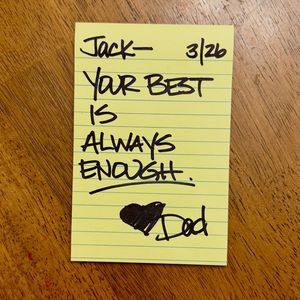 Jack— 3/26
YOUR BEST
IS
ALWAYS
ENOUGH.
♥Dad